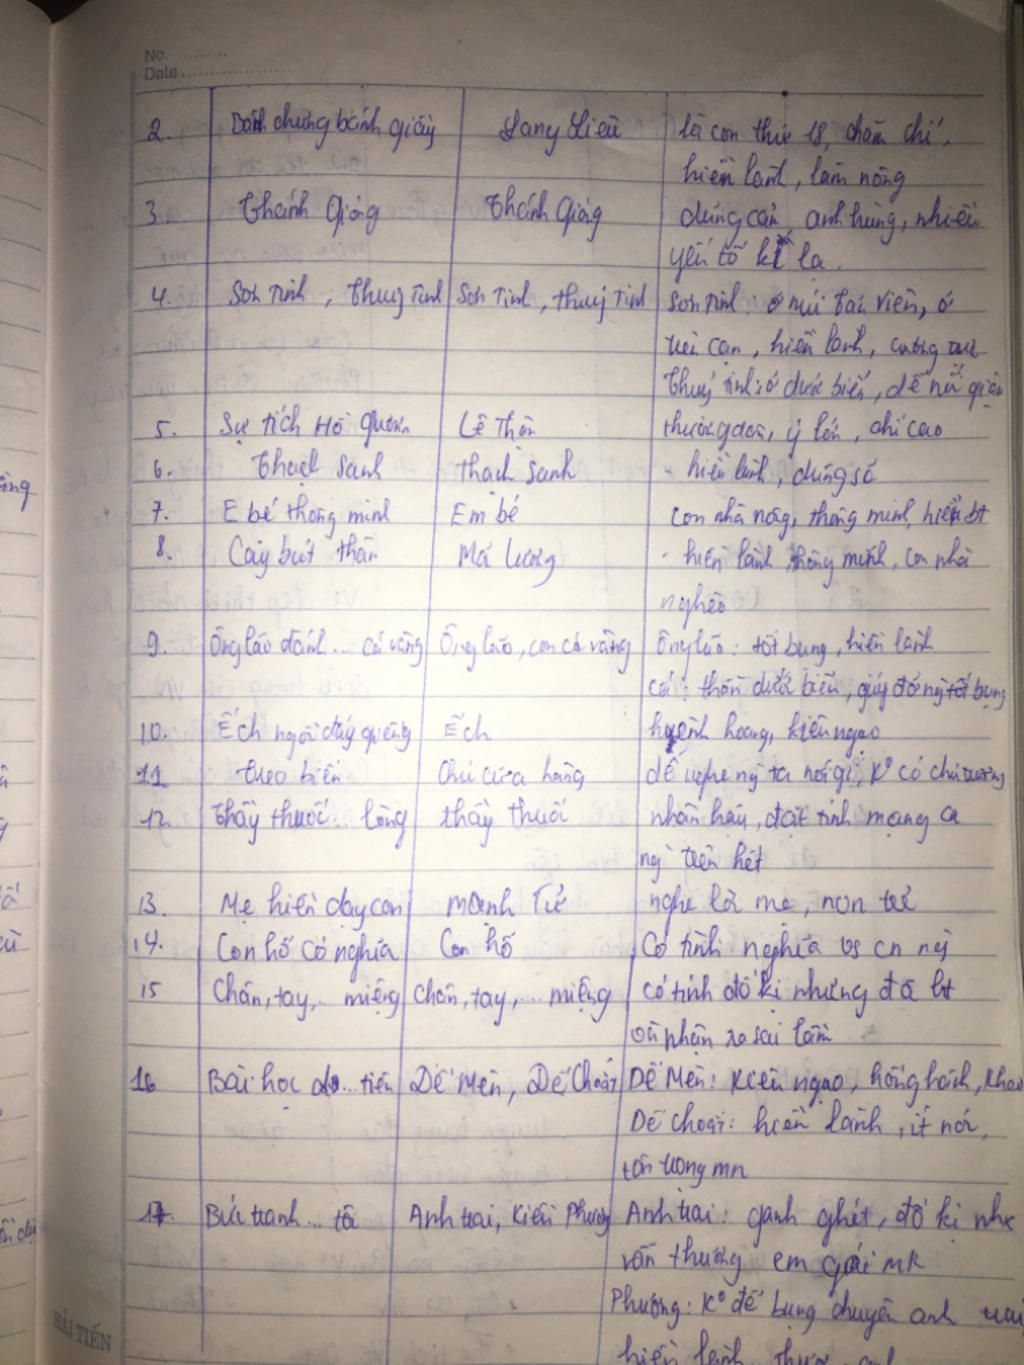 No.
Date
2. Bánh chưng bánh giầy Lang Liêu là con thứ 18, chăm chỉ,
hiền lành, làm nông
3. Thánh Gióng Thánh Gióng dũng cảm, anh hùng, nhiều
yếu tố kì lạ.
4. Sơn Tinh, Thuỷ Tinh Sơn Tinh, Thuỷ Tinh Sơn Tinh: ở núi Tản Viên, ở
trên cạn, hiền lành, cường
Thuỷ Tinh: ở dưới biển, dễ nổi giận
5. Sự tích Hồ Gươm Lê Thận thương dân, ý lớn, chí cao
6. Thạch Sanh Thạch Sanh - hiền lành, dũng sĩ
7. E bé thông minh Em bé con nhà nông, thông minh, hiểu bt
8. Cây bút thần Mã Lương - hiền lành, thông minh, con nhà
nghèo
9. Ông lão đánh... cá vàng Ông lão, con cá vàng Ông lão: tốt bụng, hiền lành
cá: thần dưới biển, giúp đỡ ng tốt bụng
10. Ếch ngồi đáy giếng Ếch huênh hoang, kiêu ngạo
11 Treo biển Chủ cửa hàng dễ nghe ng ta nói gì, k° có chủ trương
12. Thầy thuốc... lòng thầy thuốc nhân hậu, đặt tính mạng của
ng trên hết
13. Mẹ hiền dạy con Mạnh Tử nghe lời mẹ, non trẻ
14. Con hổ có nghĩa Con hổ Có tình nghĩa vs cn ng
15 Chân, tay,... miệng Chân, tay,... miệng có tính đố kị nhưng đã bt
và nhận ra sai lầm
16 Bài học đ... tiên Dế Mèn, Dế Choắt Dế Mèn: kiêu ngạo, hống hách, khoe
Dế Choắt: hiền lành, ít nói,
tôn trọng mn
17. Bức tranh... tôi Anh trai, Kiều Phương Anh trai: ganh ghét, đố kị nhg
vẫn thương em gái mk
Phương: k° để bụng chuyện anh trai
hiền lành, thương anh
BÀI TIẾN